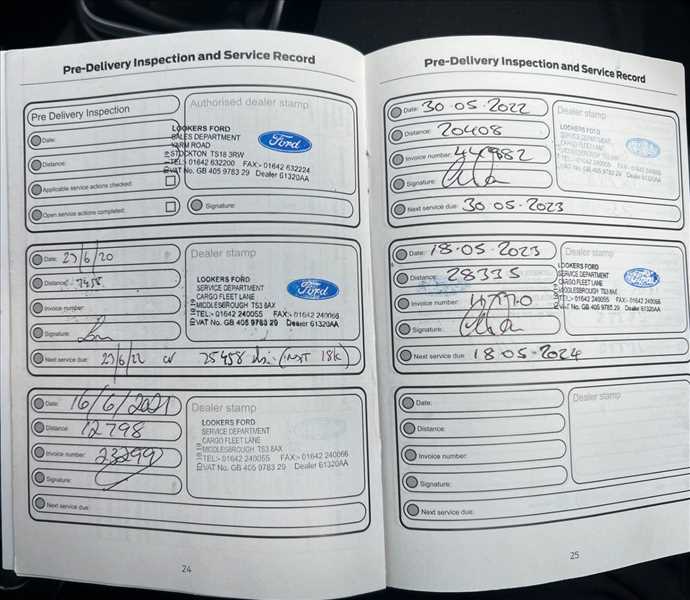 Pre-Delivery Inspection and Service Record
Pre Delivery Inspection
Date:
Distance:
Applicable service actions checked:
Open service actions completed:
Authorised dealer stamp
LOOKERS FORD
SALES DEPARTMENT
YARM ROAD
STOCKTON TS18 3RW
TEL:- 01642 632200 FAX:- 01642 632224
VAT No. GB 405 9783 29 Dealer 61320AA
Ford
Signature:
Date: 27/6/20
Distance: 7458
Invoice number:
Signature:
Next service due: 27/6/22 or 25458 (NXT 18k)
Dealer stamp
LOOKERS FORD
SERVICE DEPARTMENT
CARGO FLEET LANE
MIDDLESBROUGH TS3 8AX
TEL:- 01642 240055 FAX:- 01642 240066
VAT No. GB 405 9783 29 Dealer 61320AA
Ford
Date: 16/6/2021
Distance: 12798
Invoice number: 23299
Signature:
Next service due:
Dealer stamp
LOOKERS FORD
SERVICE DEPARTMENT
CARGO FLEET LANE
MIDDLESBROUGH TS3 8AX
TEL:- 01642 240055 FAX:- 01642 240066
VAT No. GB 405 9783 29 Dealer 61320AA
24
Pre-Delivery Inspection and Service Record
Date: 30.05.2022
Distance: 20408
Invoice number: 44982
Signature:
Next service due: 30.05.2023
Dealer stamp
LOOKERS FORD
SERVICE DEPARTMENT
CARGO FLEET LANE
Date: 18.05.2023
Distance: 28335
Invoice number:
Signature:
Next service due: 18.05.2024
Dealer stamp
LOOKERS FORD
SERVICE DEPARTMENT
CARGO FLEET LANE
MIDDLESBROUGH TS3 8AX
TEL:- 01642 240055 FAX:- 01642 240066
VAT No. GB 405 9783 29 Dealer 61320AA
Ford
Date:
Distance:
Invoice number:
Signature:
Next service due:
Dealer stamp
25